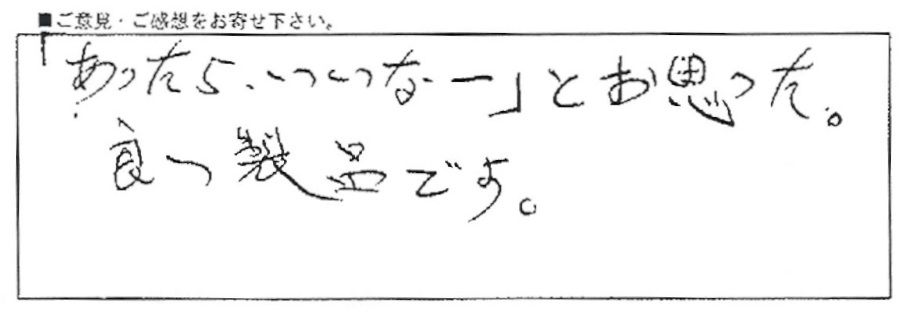 ■ご意見・ご感想をお寄せ下さい。
「あったら、いいなー」とお思った。
良い製品です。